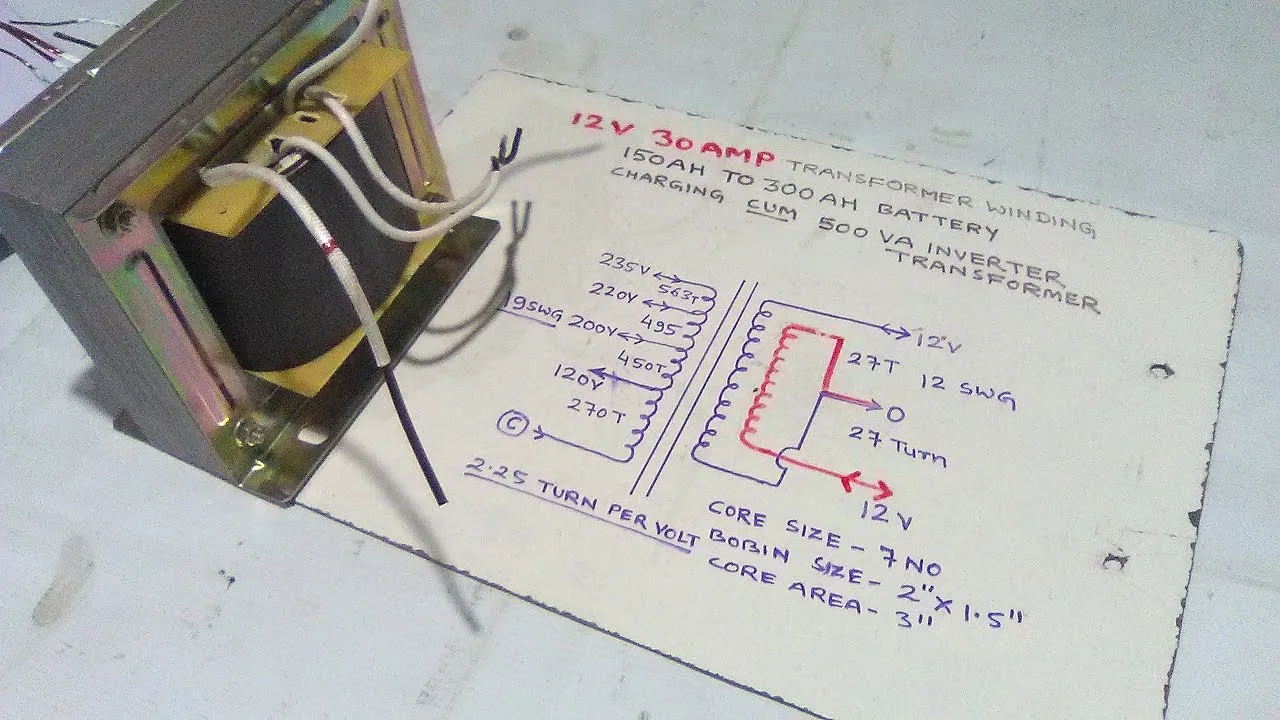 12V 30AMP TRANSFORMER WINDING,
150AH TO 300AH BATTERY
CHARGING CUM 500 VA INVERTER
TRANSFORMER
235V
563T
220V
495
19SWG 200V
450T
120V
270T
C
2.25 TURN PER VOLT
12V
27T 12 SWG
O
27 Turn
12V
CORE SIZE - 7 NO
BOBIN SIZE - 2" X 1.5"
CORE AREA - 3"